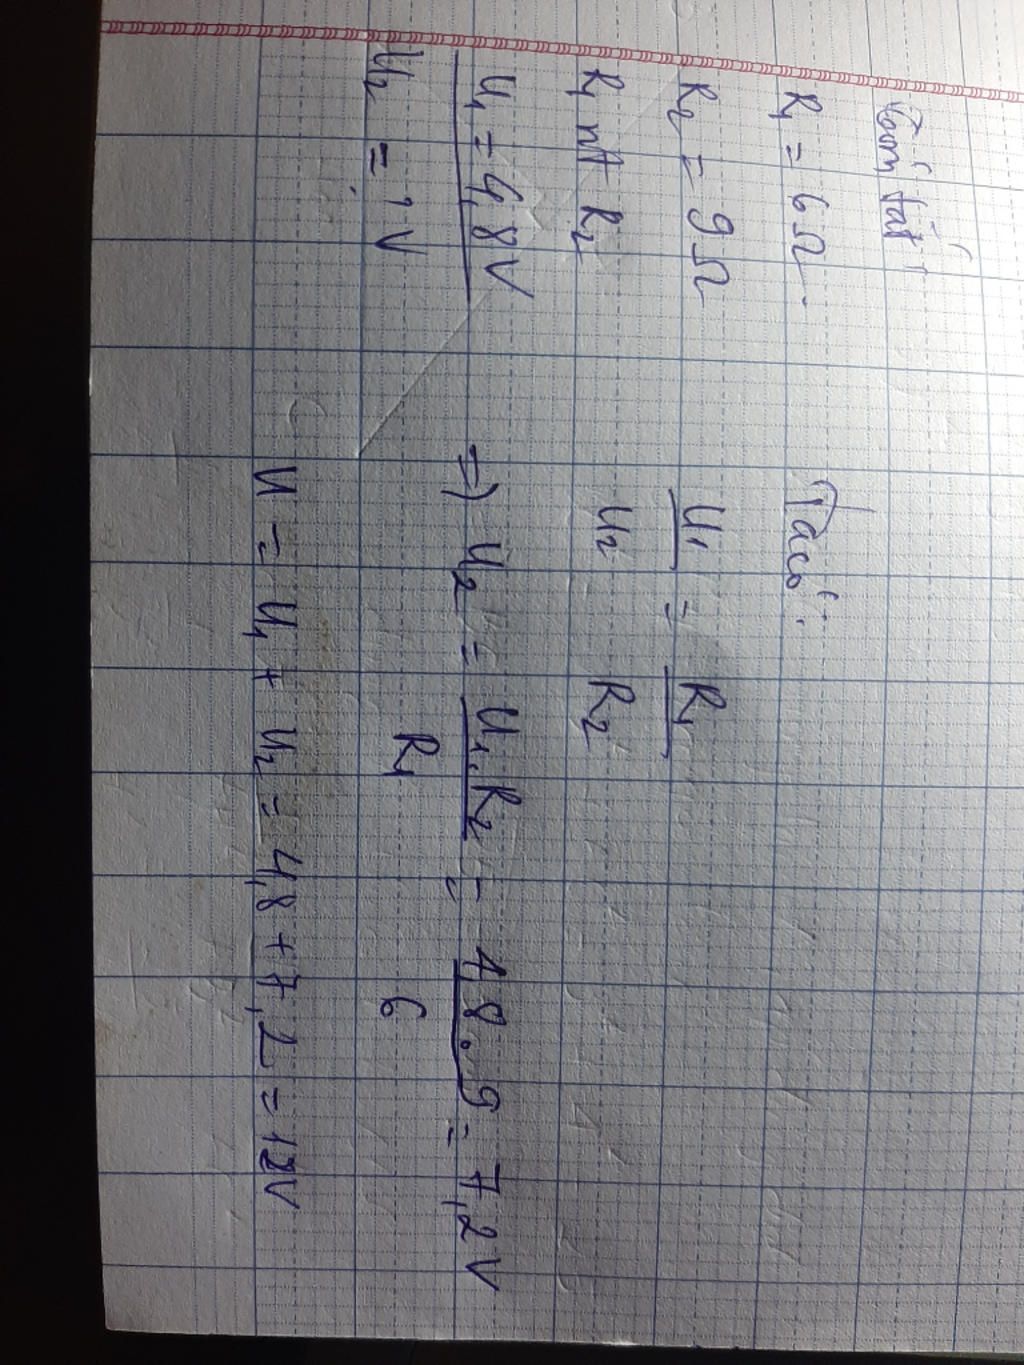 Tóm tắt
R₁ = 6Ω
R₂ = 9Ω
R₁ nt R₂
U₁ = 4,8V
U₂ = ? V
Ta có:
U₁/U₂ = R₁/R₂
=) U₂ = U₁.R₂/R₁ = 4,8.9/6 = 7,2V
U = U₁ + U₂ = 4,8 + 7,2 = 12V